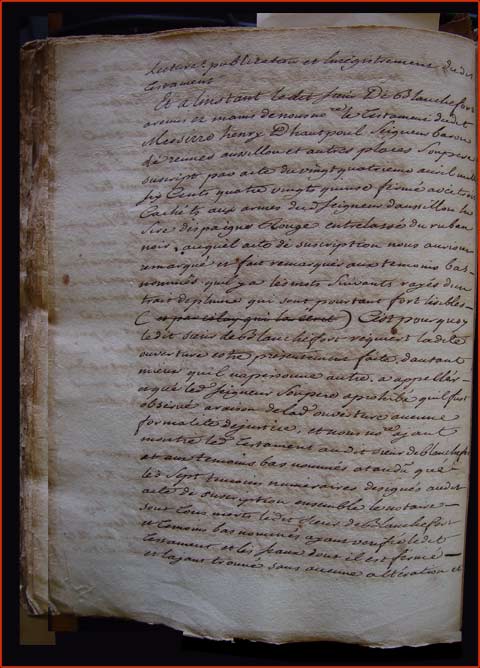 lecture publication et Enregistrement dudit
Testament
Et a linstant ledit sieur De Blanchefort
a remis ez mains de nous nore le Testament dudit
Messire henry Dhautpoul Seigneur baron
de rennes aussillon et autres places Soupere
suscript par acte du vingt quatrieme avril mille
six Cents quatre vingts quinse fermé avec
Cachets aux armes dud Seigneur daussillon
Sire despaigne Rouge entrelassé du ruban
noir, auquel acte de suscription nous aurions
remarqué et fait remarquer aux temoins bas
nommés quil y a les mots Suivants rayés dun
trait de plume qui sont pourtant fort lisibles
( ) Cest pourquoy
ledit Sieur de Blanchefort requiert ladite
ouverture estre presentement faite, dautant
mieux quil na personne autre a appeller
et que led Seigneur Soupere a prohibé quil fust
observé a raison de lad ouverture aucune
formalité de justice, et nous nore ayant
montré led Testament audit sieur de blanchefort
et aux temoins bas nommés attandu que
les Sept temoins numeraires designés audit
acte de suscription ensemble le notaire
sont tous morts ledit sieur de Blanchefort
et temoins bas nommés ayant verifié ledit
Testament et les seaux dont il est fermé
et layant trouvé sans aucune altération et